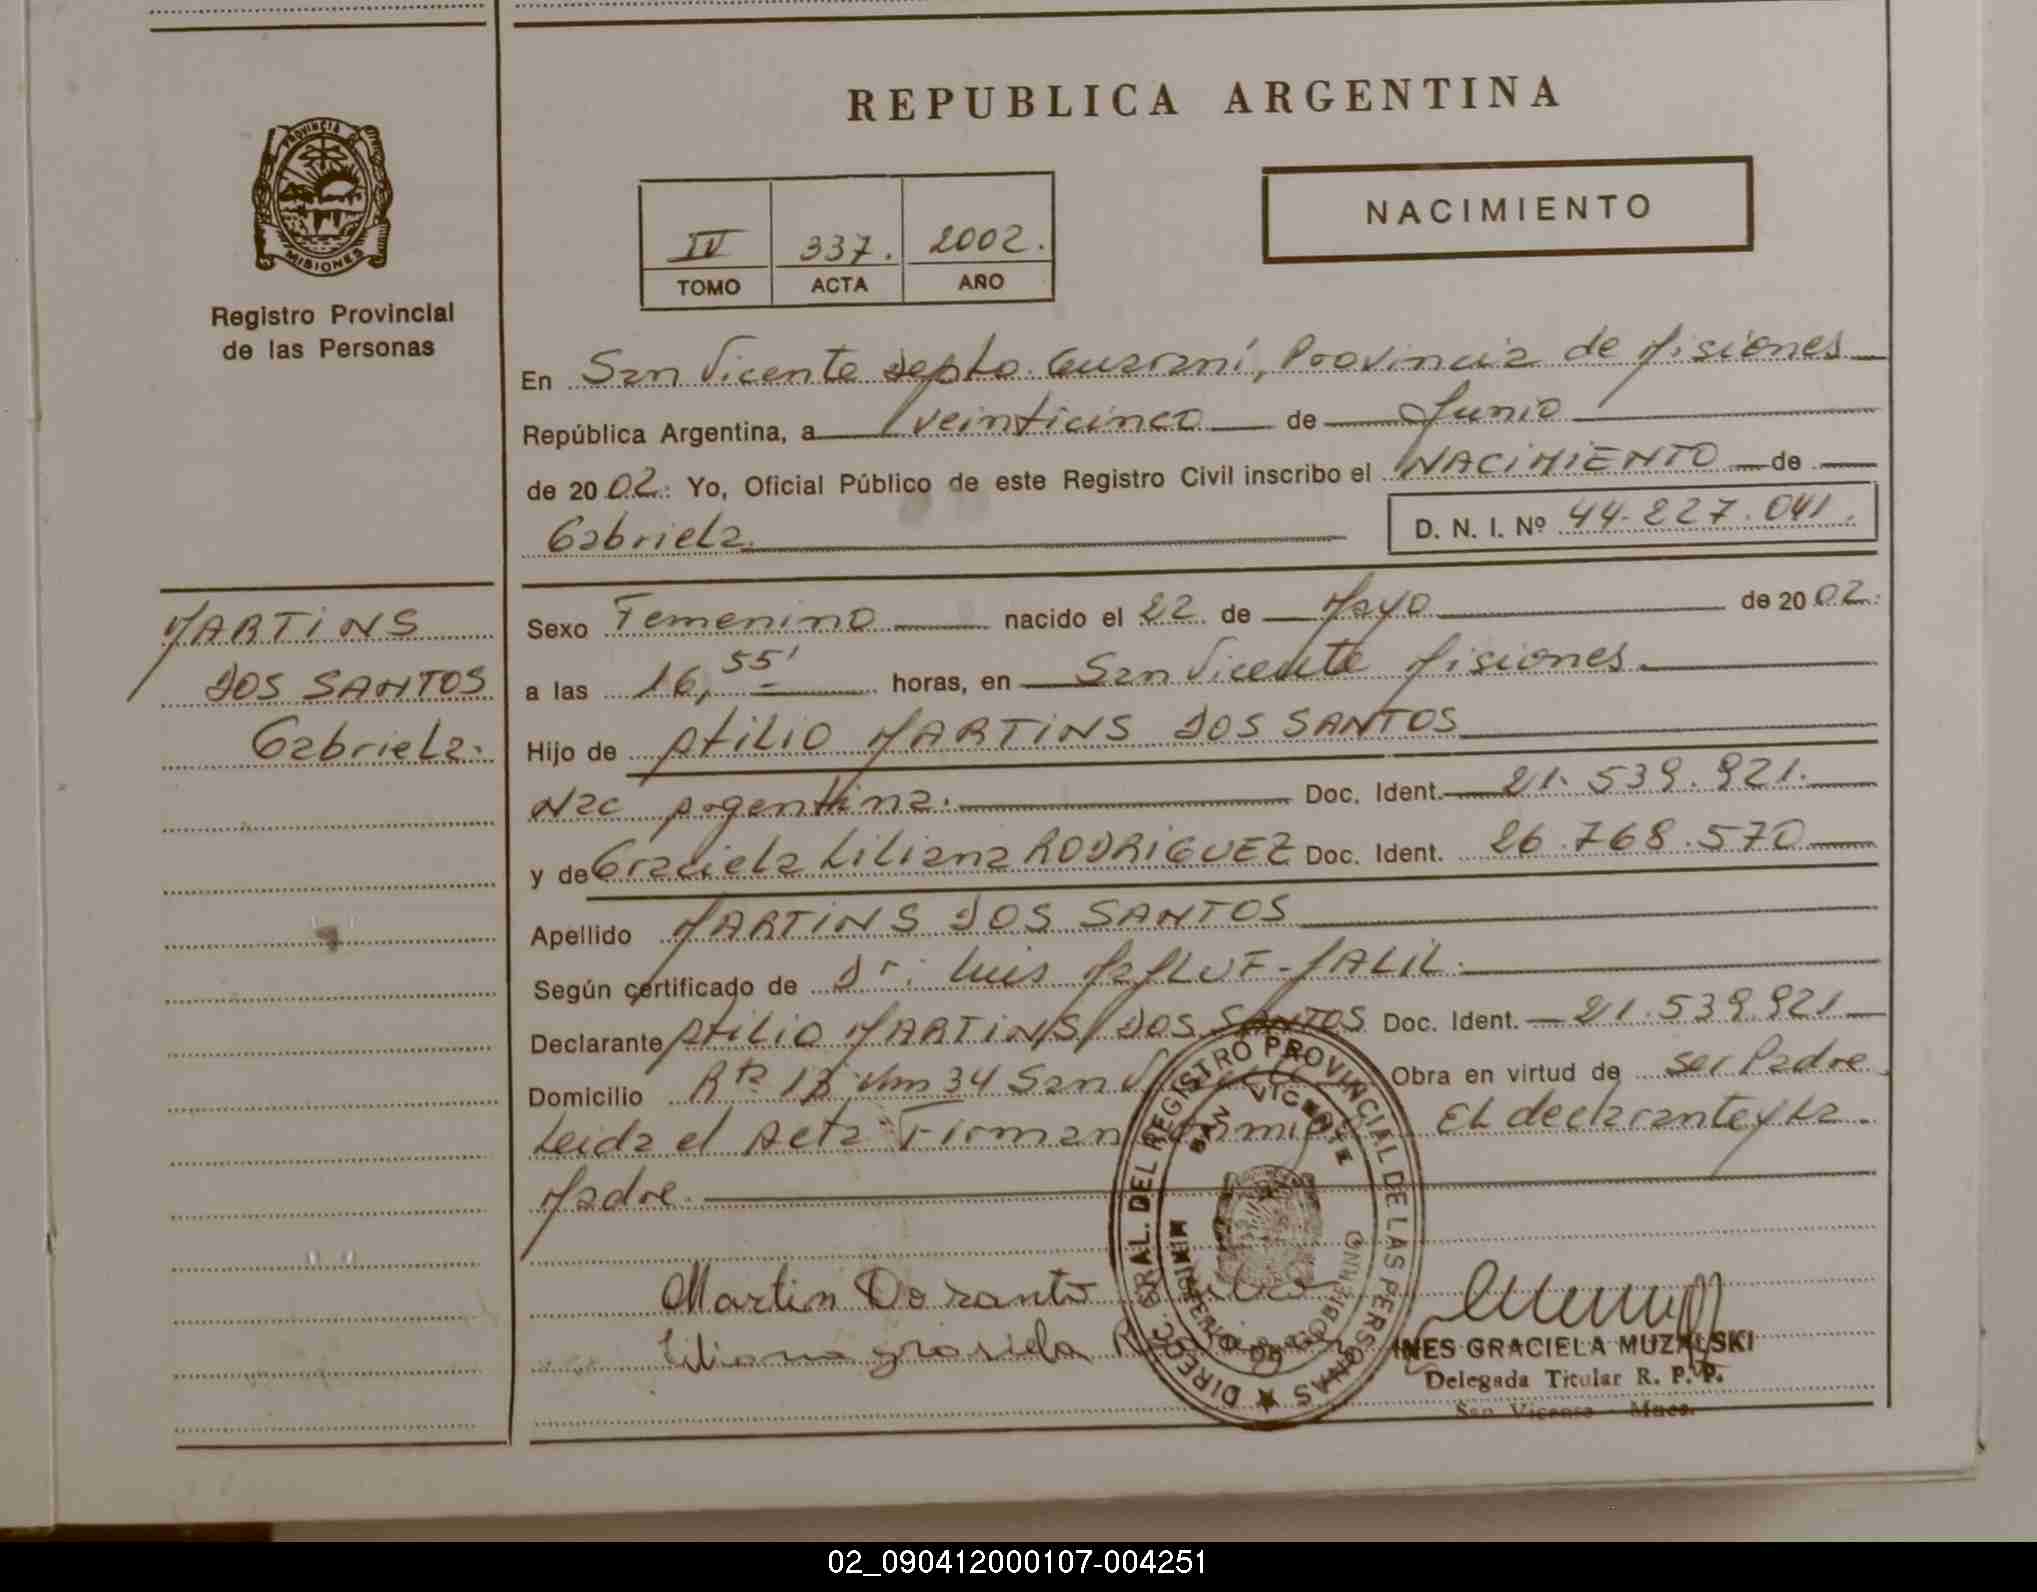 REPUBLICA ARGENTINA
PROVINCIA DE
MISIONES
Registro Provincial
de las Personas
IV 337. 2002.
TOMO ACTA AÑO
NACIMIENTO
En San Vicente Depto. Guaraní, Provincia de Misiones
República Argentina, a veinticinco de Junio
de 2002: Yo, Oficial Público de este Registro Civil inscribo el NACIMIENTO de
Gabriela. D. N. I. Nº 44.227.041.
MARTINS
DOS SANTOS
Gabriela.
Sexo Femenino nacido el 22 de Mayo de 2002:
a las 16,55' horas, en San Vicente Misiones.
Hijo de Atilio MARTINS DOS SANTOS
Nac Argentina. Doc. Ident. 21.539.921.
y de Graciela Liliana RODRIGUEZ Doc. Ident. 26.768.570
Apellido MARTINS DOS SANTOS
Según certificado de Dr: Luis MAJLUF-JALIL.
Declarante Atilio MARTINS DOS SANTOS Doc. Ident. 21.539.921
Domicilio Rta 13 Km 34 San Obra en virtud de ser Padre
Leida el Acta Firman El declarante y La
Madre.
DIREC. GRAL. DEL REGISTRO PROVINCIAL DE LAS PERSONAS
SAN VICENTE
MINISTERIO DE GOBIERNO
Martin Do santo
Liliana grasiela
INES GRACIELA MUZALSKI
Delegada Titular R. P. P.
San Vicente - Mnes.
02_090412000107-004251